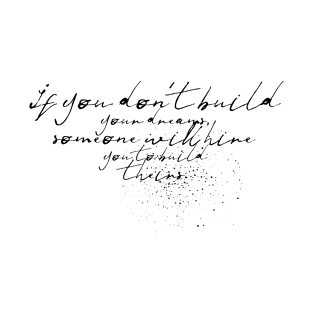 if you don't build
your dreams,
someone will hire
you to build
theirs.